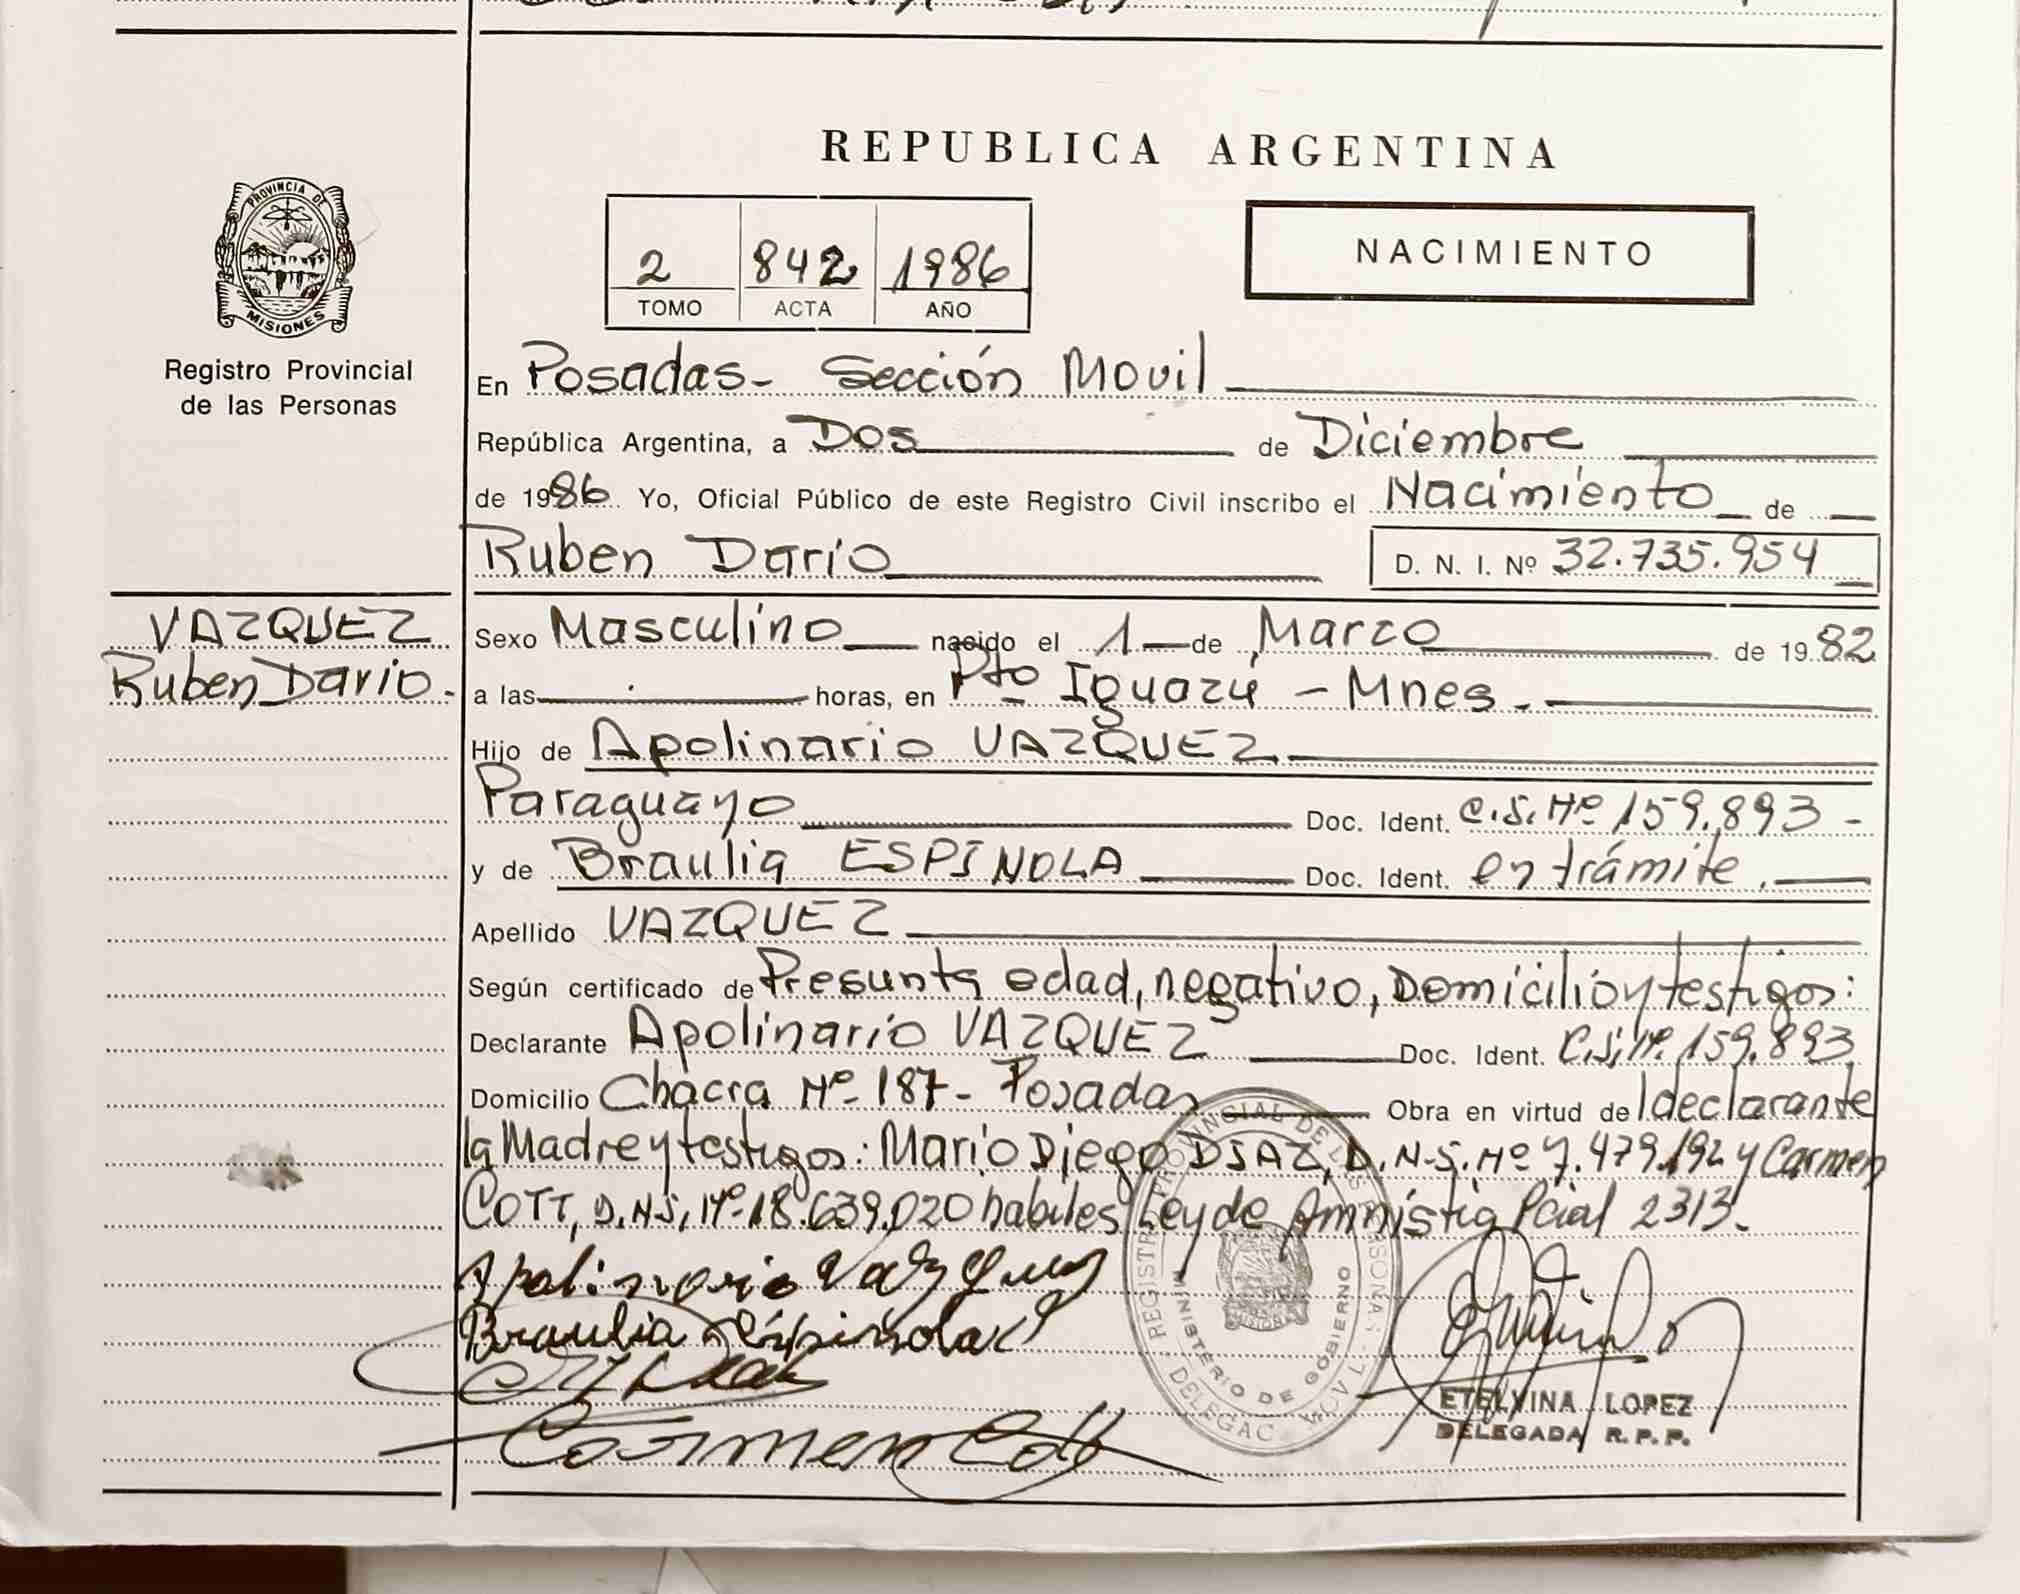 REPUBLICA ARGENTINA
PROVINCIA DE MISIONES
Registro Provincial
de las Personas
2 842 1986
TOMO ACTA AÑO
NACIMIENTO
En Posadas - Sección Movil
República Argentina, a Dos de Diciembre
de 1986. Yo, Oficial Público de este Registro Civil inscribo el Nacimiento de
Ruben Dario D. N. I. Nº 32.735.954
VAZQUEZ
Ruben Dario.-
Sexo Masculino nacido el 1 de Marzo de 1982
a las . horas, en Pto Iguazú - Mnes.
Hijo de Apolinario VAZQUEZ
Paraguayo Doc. Ident. C.I. Nº 159.893 -
y de Braulia ESPINOLA Doc. Ident. en trámite.
Apellido VAZQUEZ
Según certificado de Presunta edad, negativo, Domicilio y testigos:
Declarante Apolinario VAZQUEZ Doc. Ident. C.I. Nº 159.893
Domicilio Chacra Nº 187 - Posadas Obra en virtud de l declarante
la Madre y testigos: Mario Diego DIAZ, D.N.I. Nº 7.479.192 y Carmen
COTT, D.N.I. Nº 18.639.020 habiles Ley de Amnistia Pcial 2313.
Apolinario Vazquez
Braulia Espinola
Carmen Cott
REGISTRO PROVINCIAL DE LAS PERSONAS
MINISTERIO DE GOBIERNO
ETELVINA LOPEZ
DELEGADA R. P. P.